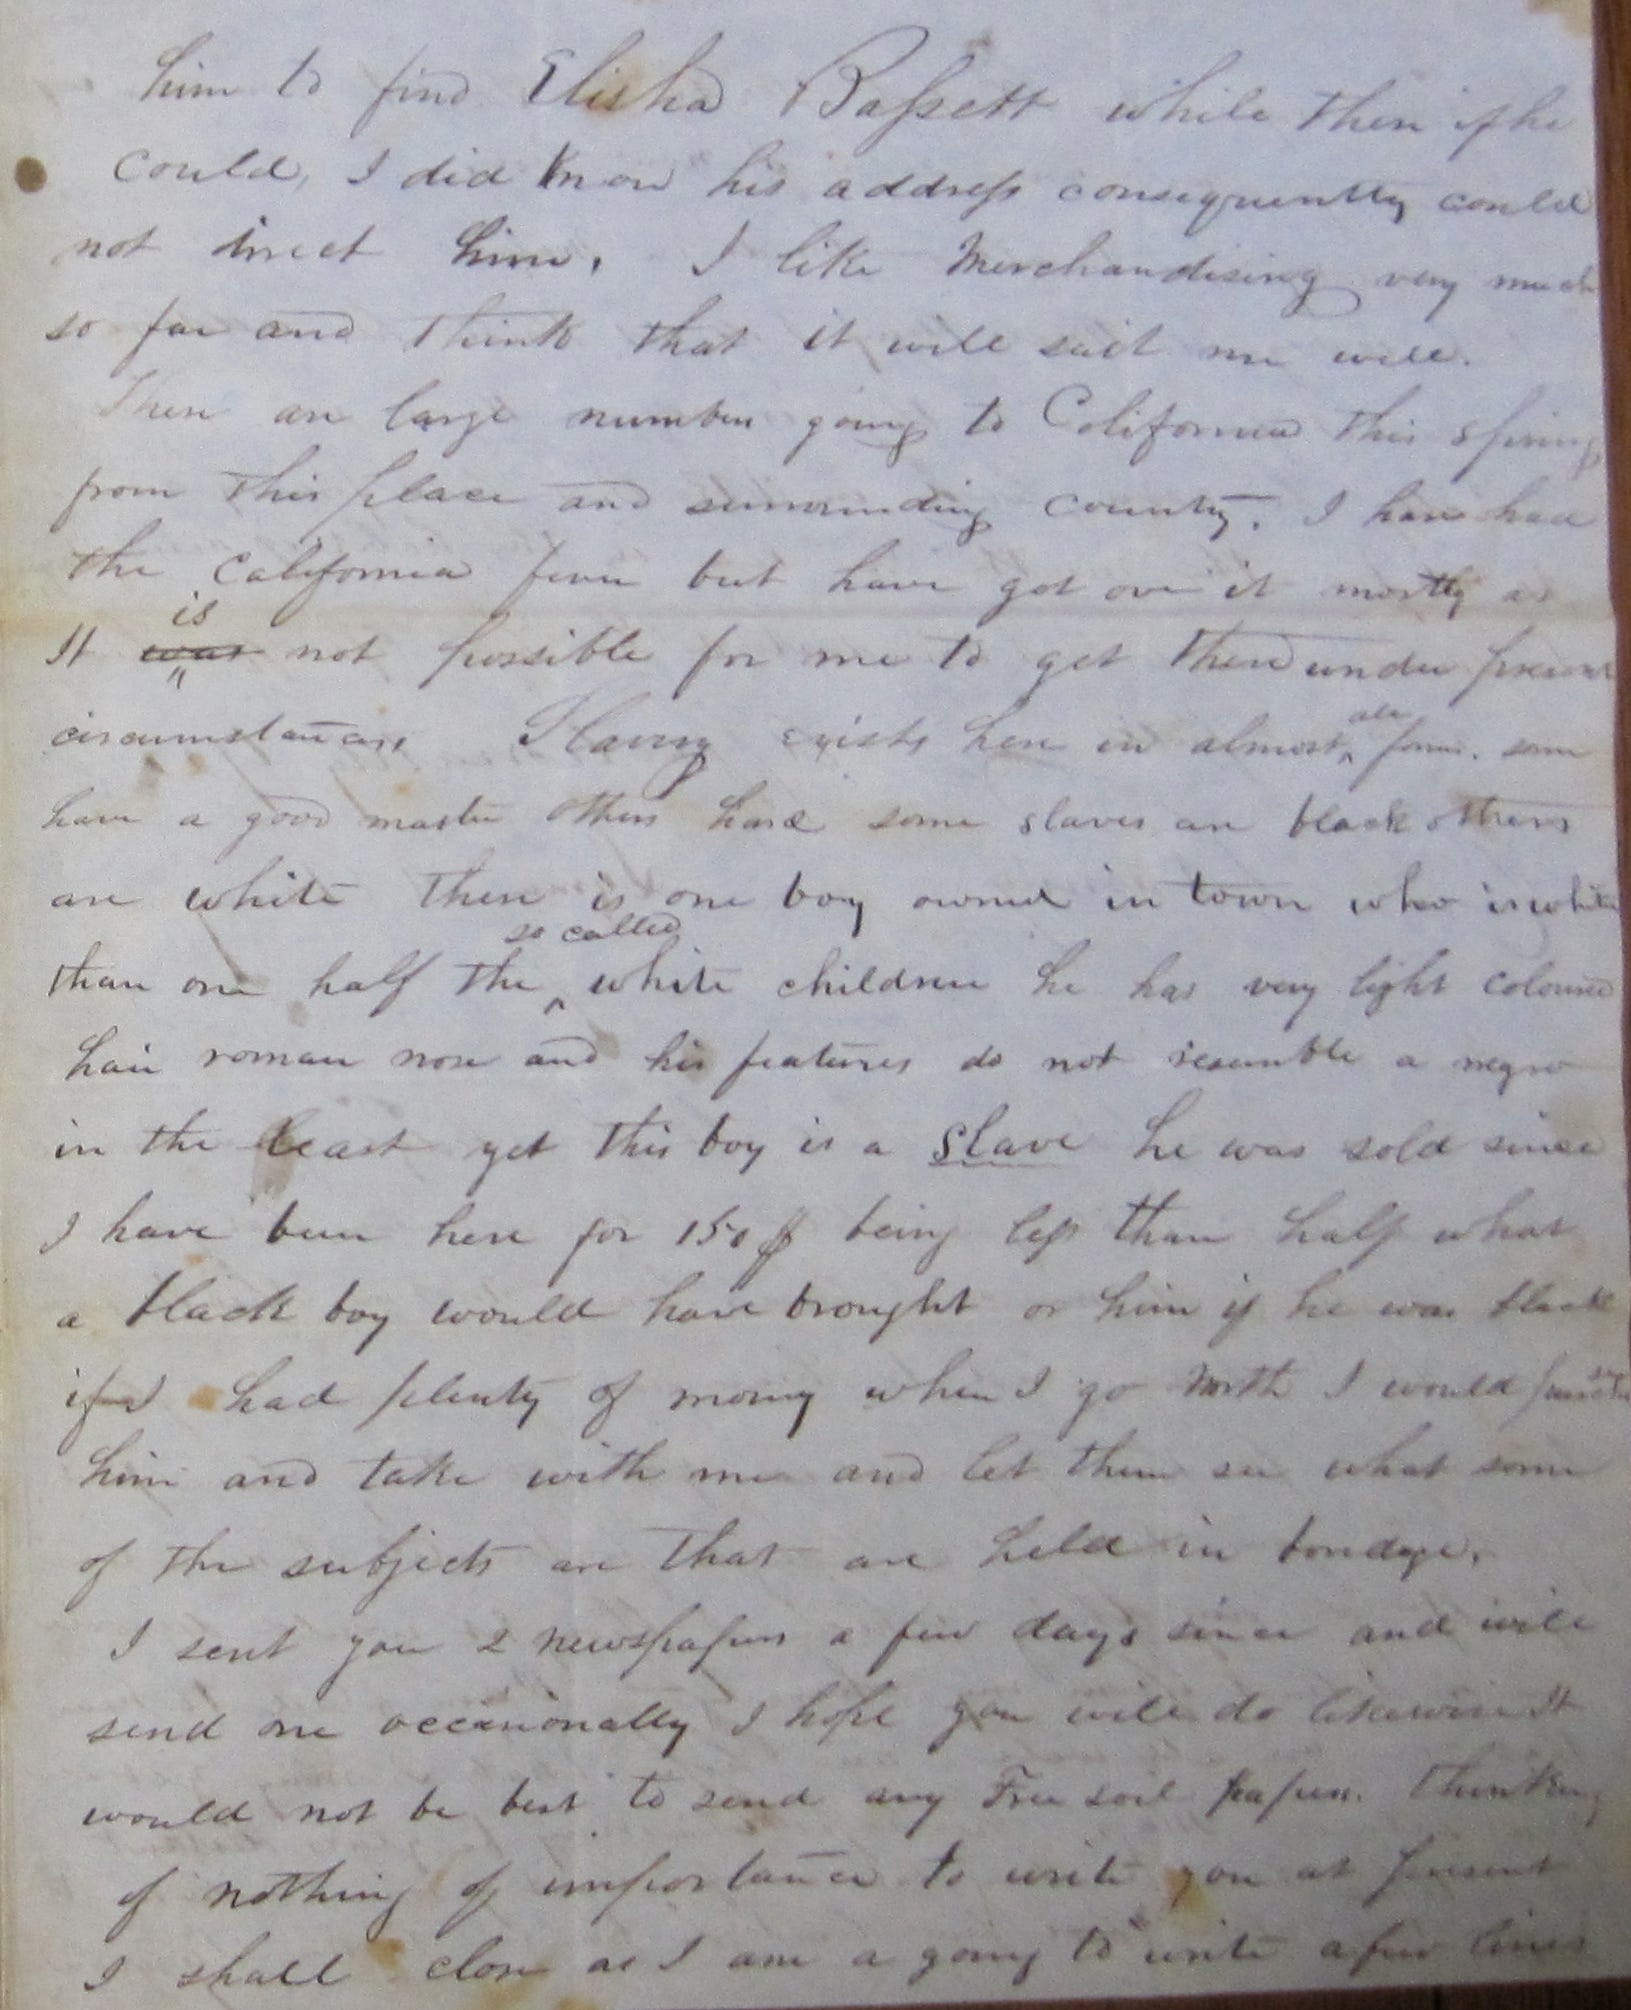 him to find Elisha Bassett while there if he
could, I did know his address consequently could
not direct him. I like Merchandising very much
so far and think that it will suit me well.
There are large number going to California this spring
from this place and surrounding county. I have had
the California fever but have got over it mostly as
It was is not possible for me to get there under present
circumstances Slavery exists here in almost all forms. some
have a good master others hard some slaves are black others
are white there is one boy owned in town who is whiter
than one half the so called white children he has very light coloured
hair roman nose and his features do not resemble a negro
in the least yet this boy is a slave he was sold since
I have been here for 150 $ being less than half what
a black boy would have brought or him if he was black
if I had plenty of money when I go North I would purchase
him and take with me and let them see what some
of the subjects are that are held in bondage.
I sent you 2 newspapers a few days since and will
send one occasionally I hope you will do likewise It
would not be best to send any Free soil papers. Thinking
of nothing of importance to write you at present
I shall close as I am a going to write a few lines